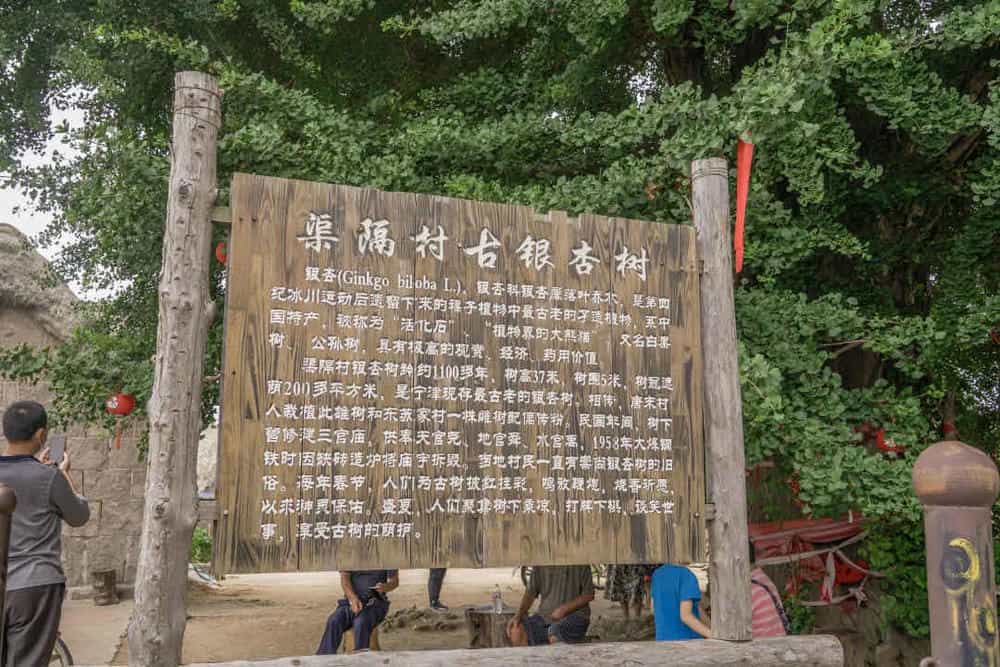 渠隔村古银杏树
银杏(Ginkgo biloba L.)，银杏科银杏属落叶乔木，是第四
纪冰川运动后遗留下来的裸子植物中最古老的孑遗植物，系中
国特产，被称为“活化石”、“植物界的大熊猫”，又名白果
树、公孙树，具有极高的观赏、经济、药用价值。
渠隔村银杏树龄约1100多年，树高37米，树围5米，树冠遮
荫200多平方米，是宁津现存最古老的银杏树。相传，唐末村
人栽植此雄树和东苏家村一株雌树配偶传粉。民国年间，树下
曾修建三官庙，供奉天官尧、地官舜、水官禹，1958年大炼钢
铁时因缺砖造炉将庙宇拆毁。当地村民一直有崇尚银杏树的旧
俗。每年春节，人们为古树披红挂彩，鸣放鞭炮，烧香祈愿，
以求神灵保佑，盛夏，人们聚拿树下乘凉，打牌下棋，谈笑世
事，享受古树的荫护。